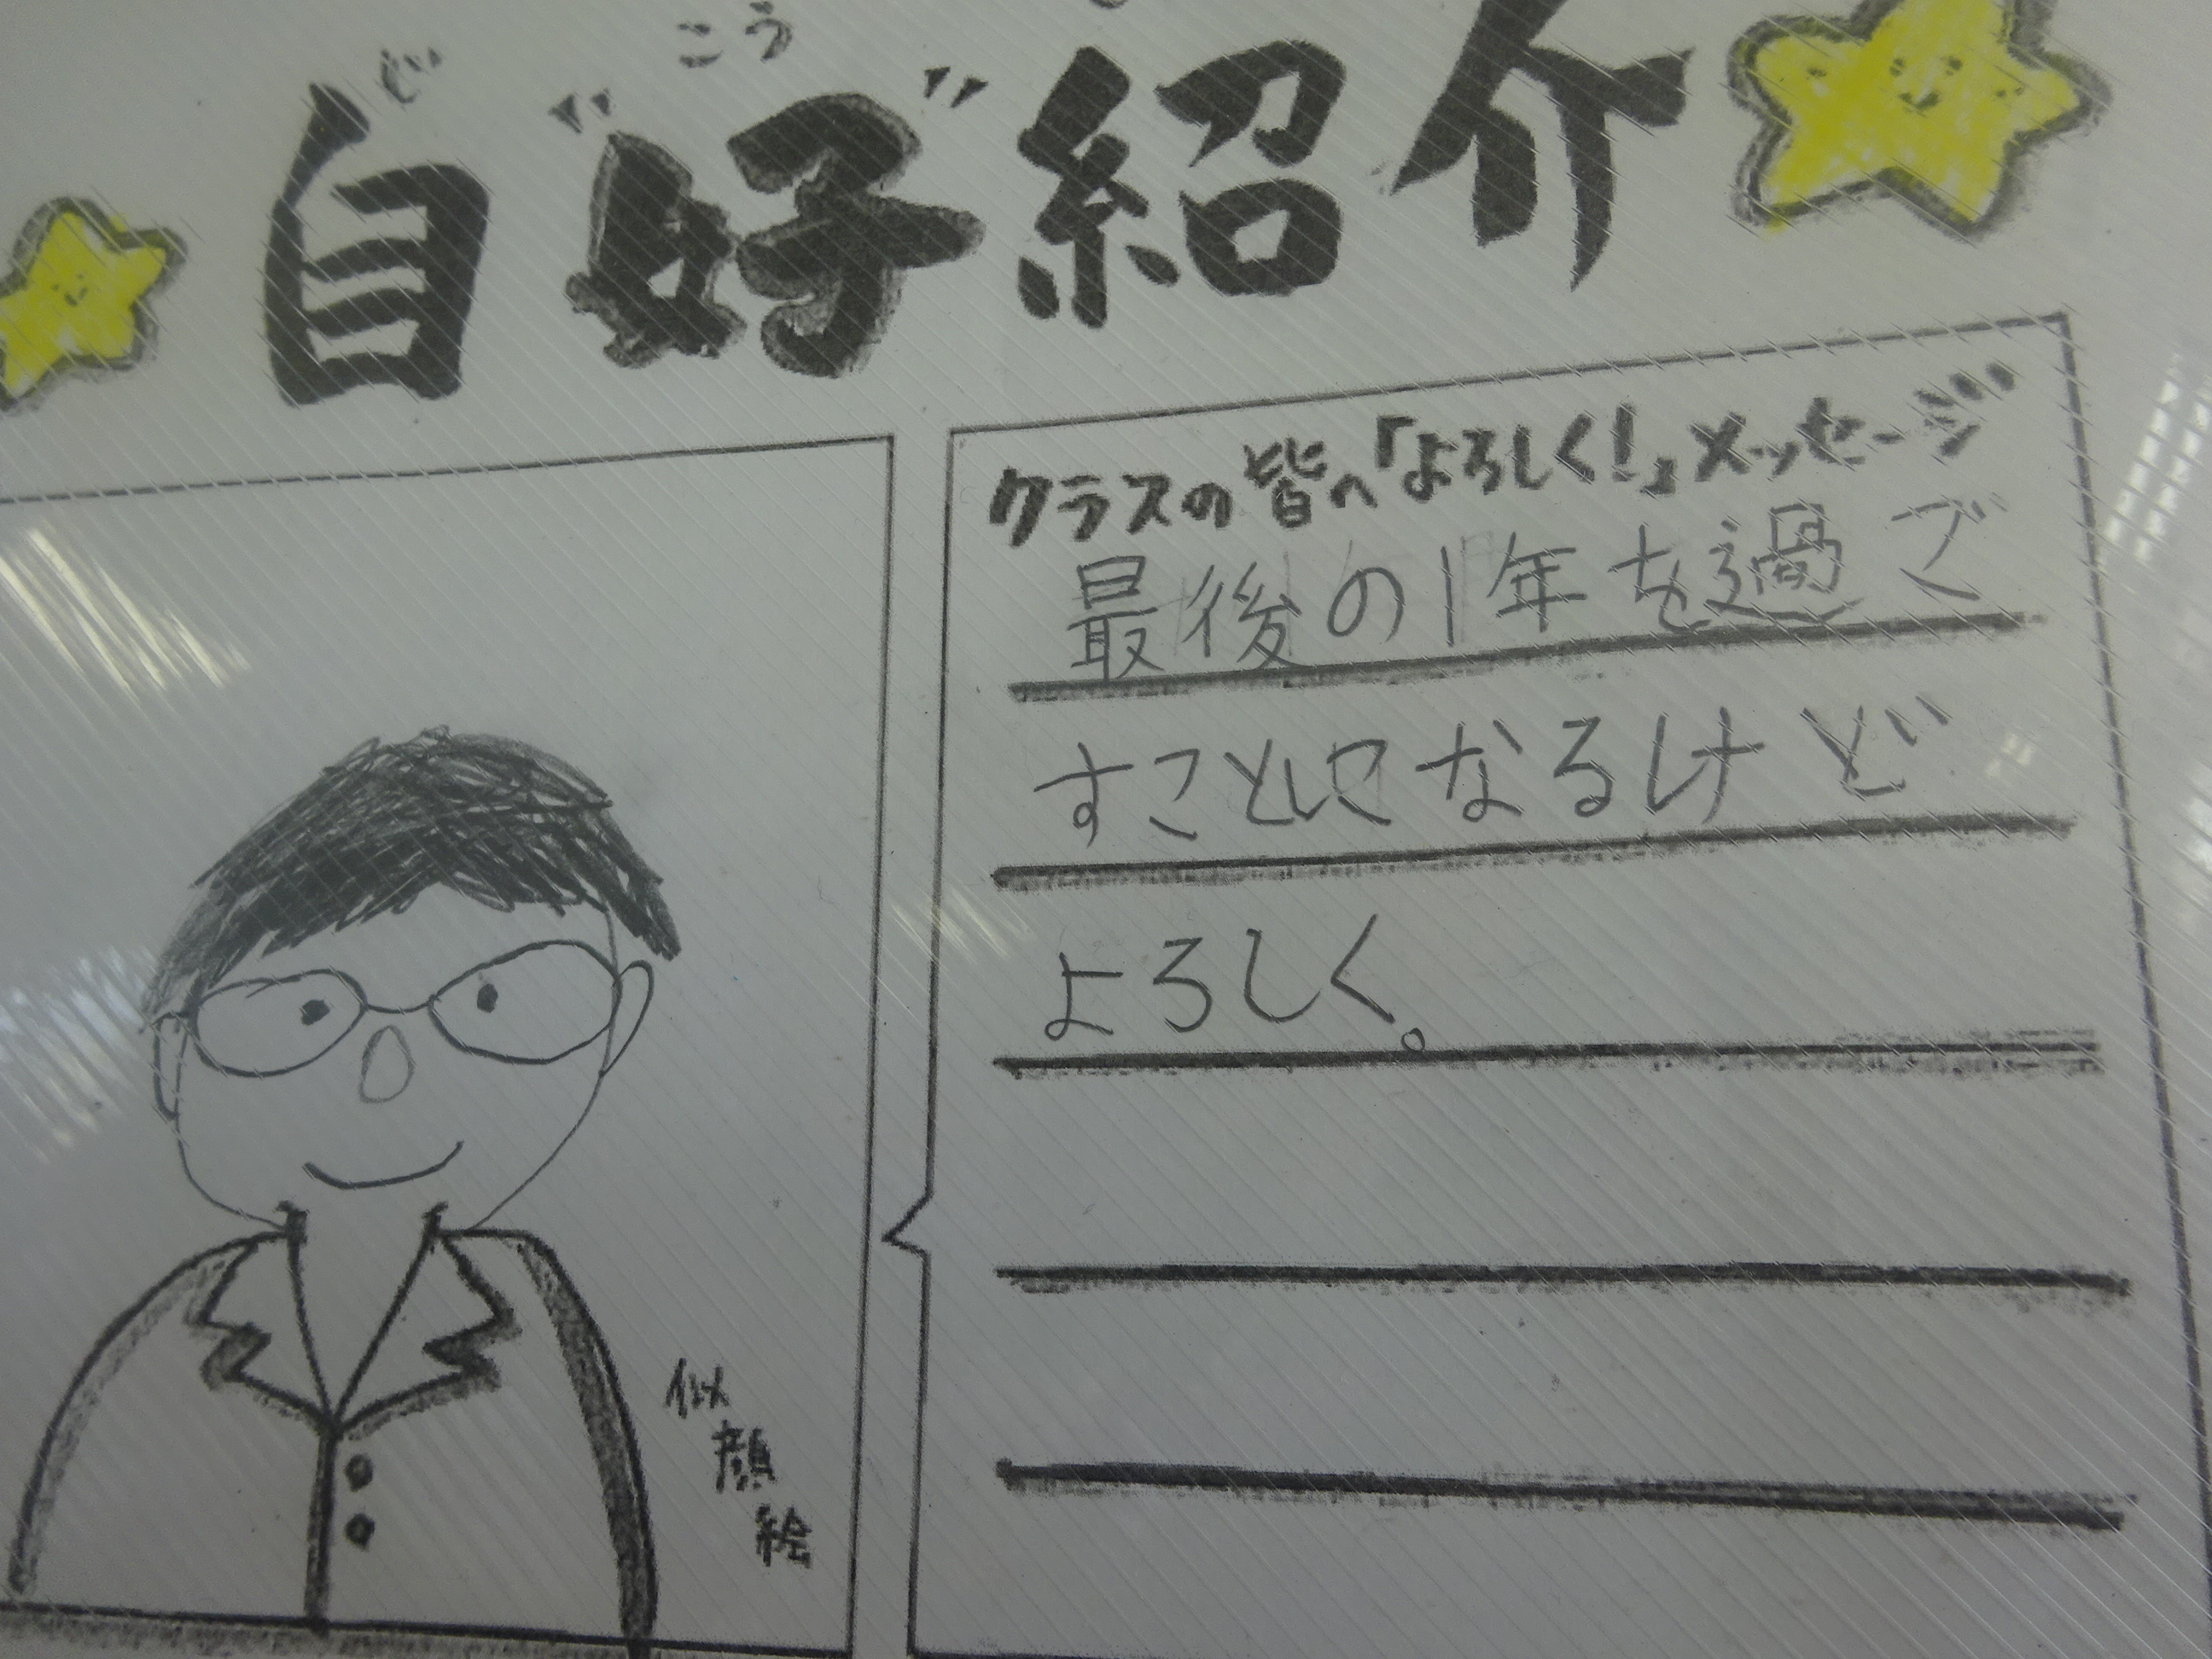 じ こう
自"好"紹介
クラスの皆へ「よろしく!」メッセージ
最後の1年を過ご
すことになるけど
よろしく。
似顔絵